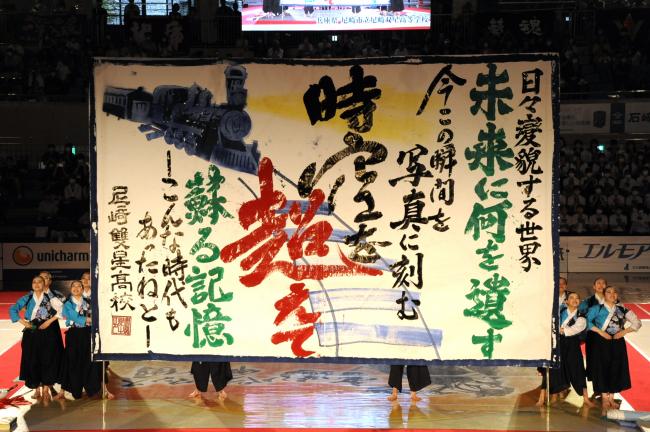 兵庫県 尼崎市立尼崎双星高等学校
日々変貌する世界
未来に何を遺す
今この瞬間を
写真に刻む
時空を
超えて
蘇る記憶
ーこんな時代も
あったねとー
尼崎雙星高校
unicharm
エルモア
石崎